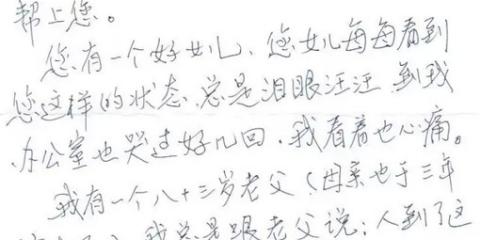 帮上您。
您有一个好女儿、您女儿每每看到
您这样的状态、总是泪眼汪汪、到我
办公室也哭过好几回、我看着也心痛。
我有一个八十三岁老父（母亲也于三年
我总是跟老父说：人到了这